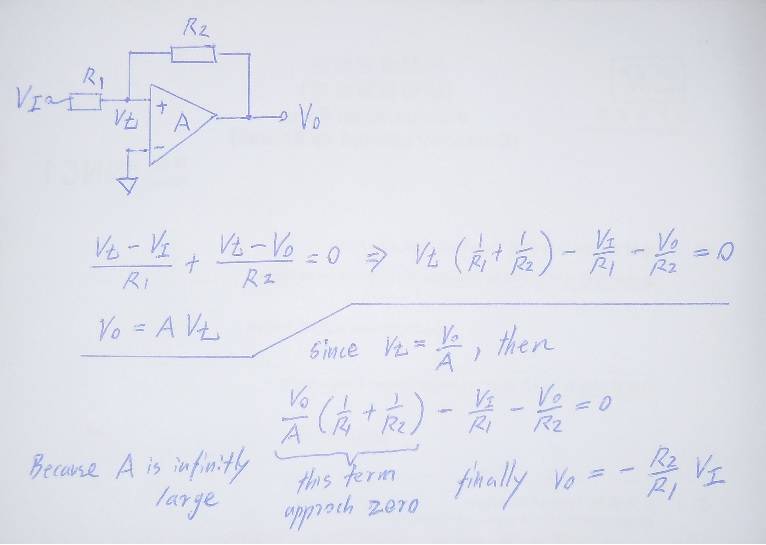 R2
R1
VI
Vt
+
A
-
Vo
(Vt - VI)/R1 + (Vt - Vo)/R2 = 0 ⇒ Vt (1/R1 + 1/R2) - VI/R1 - Vo/R2 = 0
Vo = A Vt
since Vt = Vo/A, then
Vo/A (1/R1 + 1/R2) - VI/R1 - Vo/R2 = 0
Because A is infinitly
large
this term
approch zero
finally Vo = - R2/R1 VI